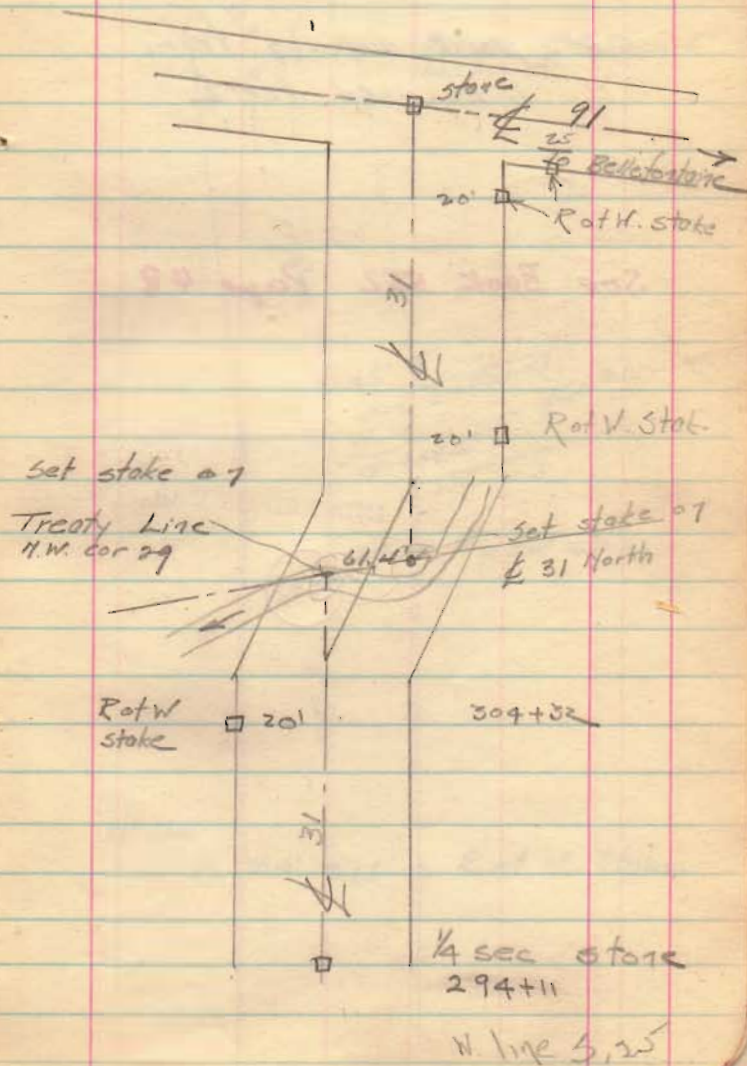 stone
℄ 91
25
to Bellefontaine
20'
R of W. stake
31
℄
20' R of W. Stak.
set stake on
Treaty Line
N.W. cor 29
61.4'
set stake on
℄ 31 North
R of W
stake
20'
304+32
31
℄
1/4 sec stone
294+11
W. line S, 25